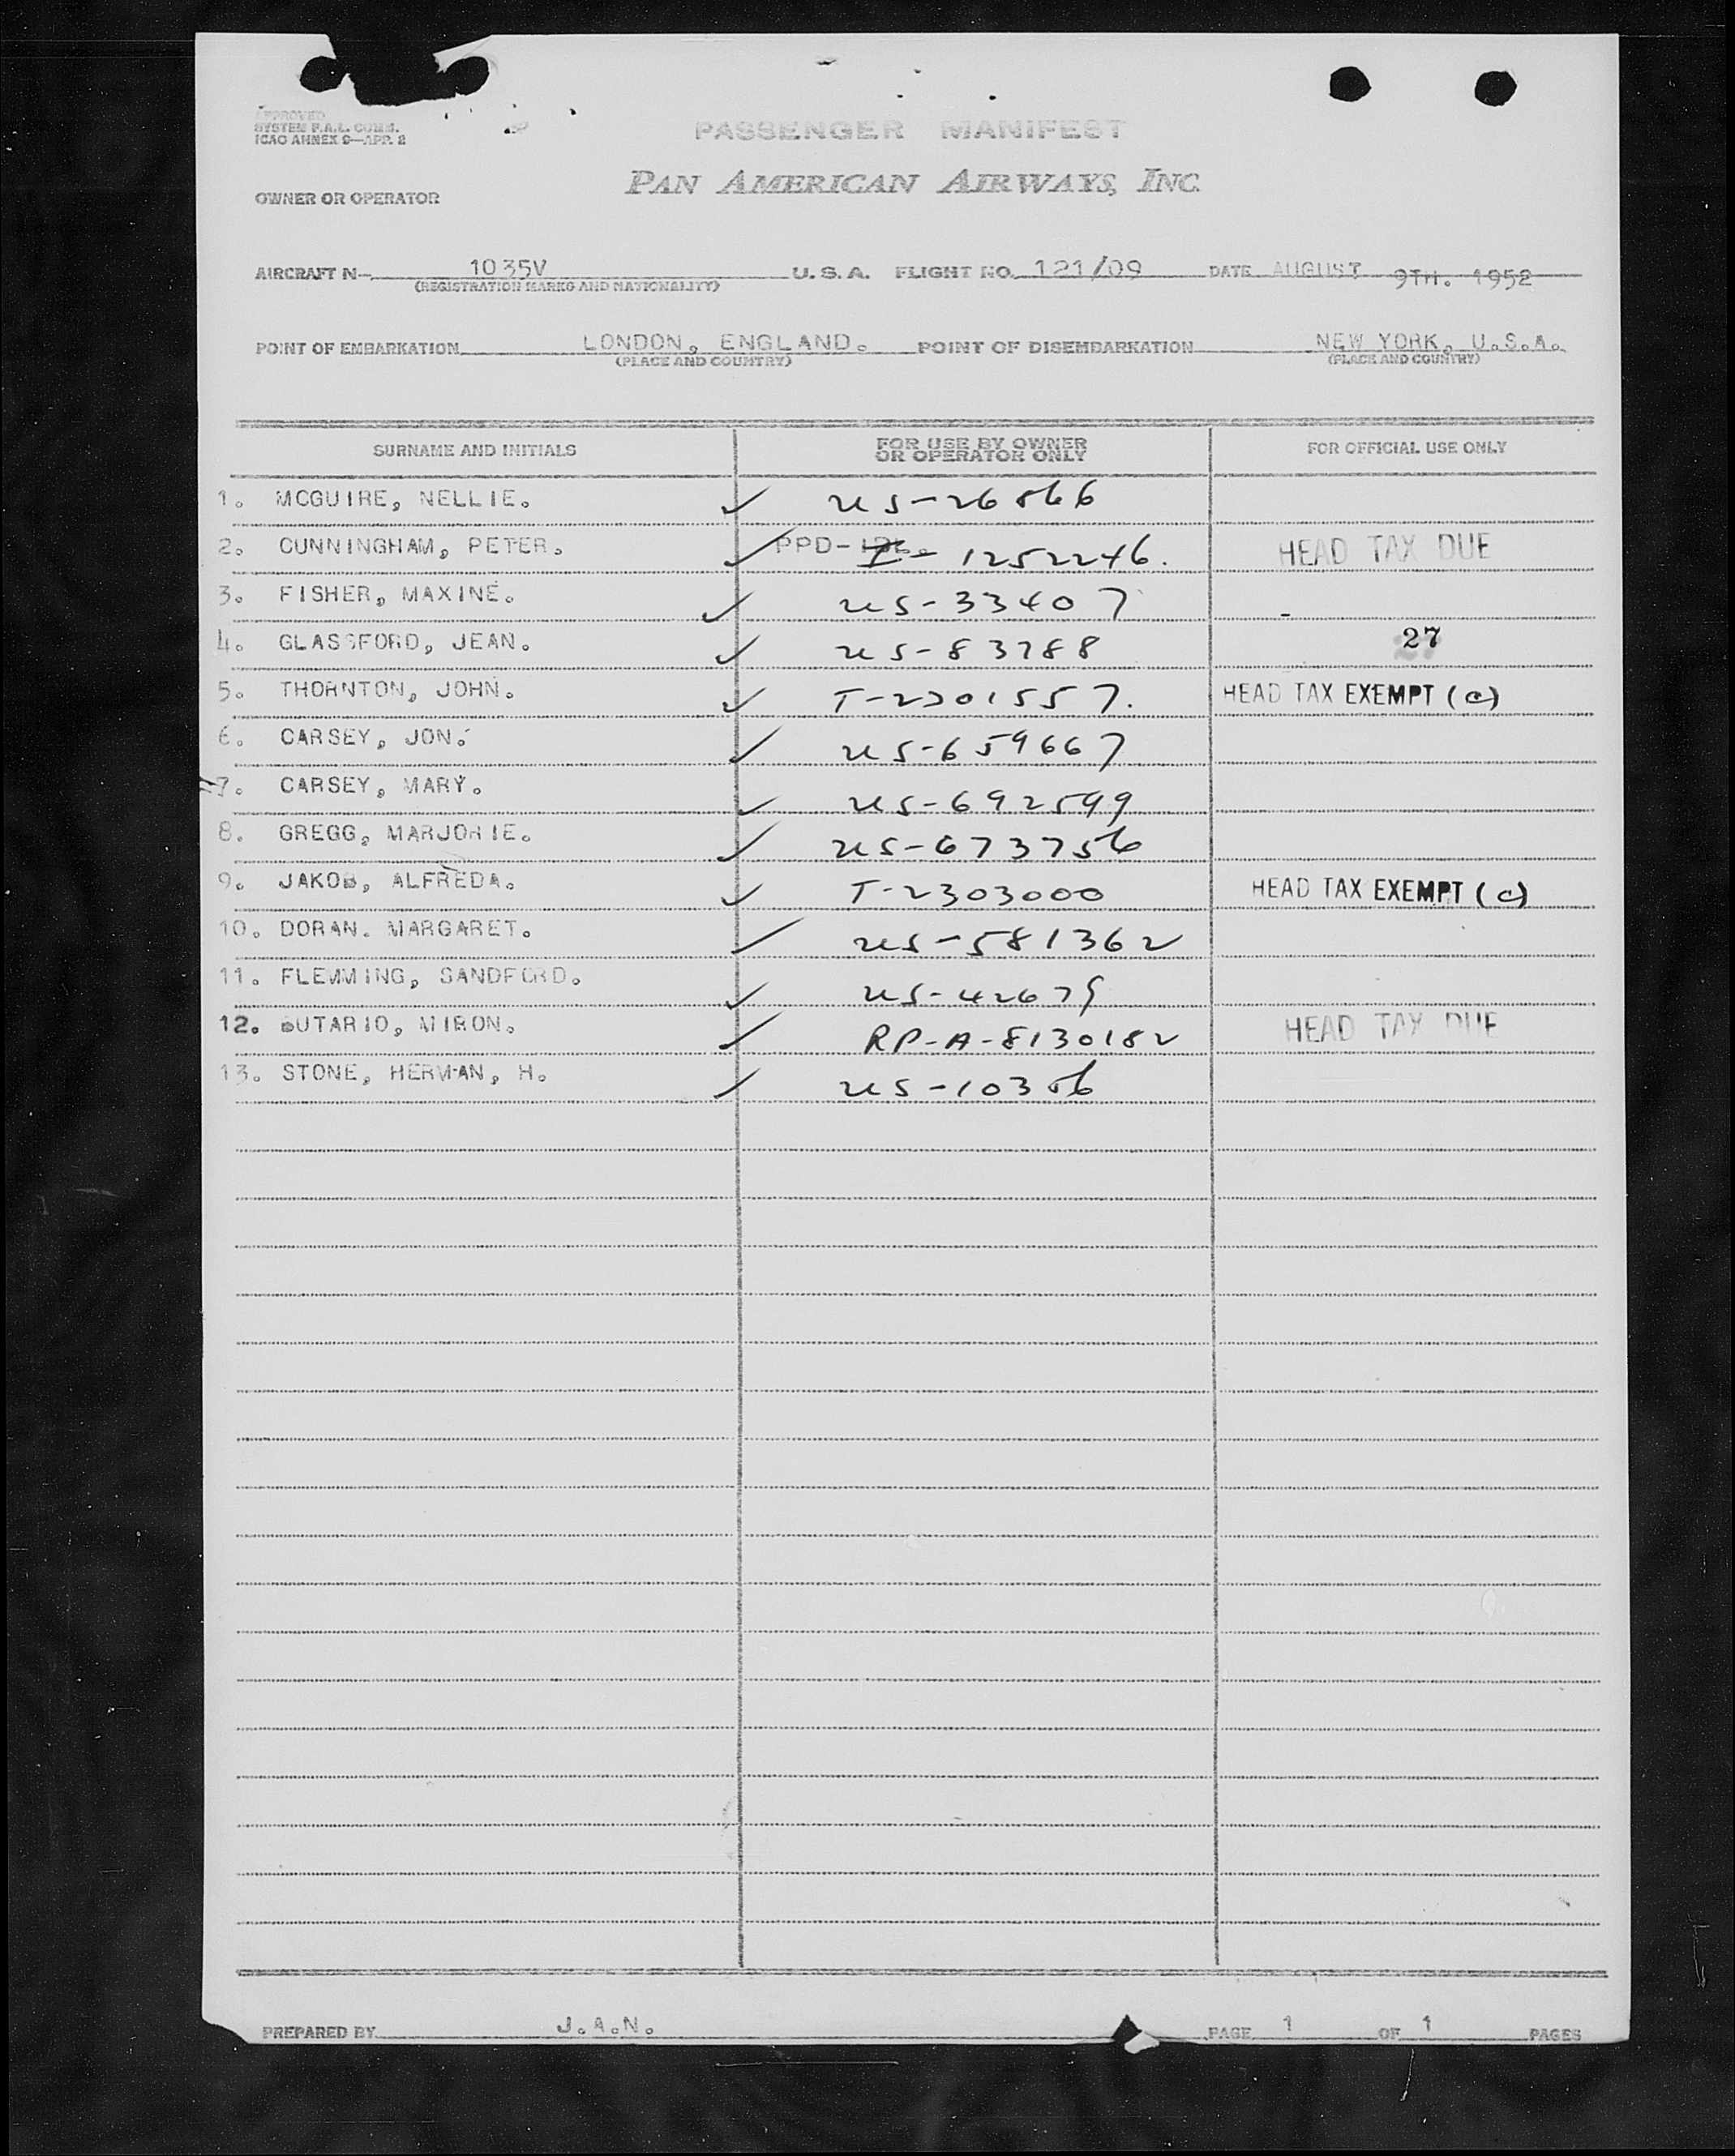 APPROVED
SYSTEM P.A.L. COMM.
ICAO ANNEX 9—APP. 2
PASSENGER MANIFEST
OWNER OR OPERATOR PAN AMERICAN AIRWAYS, INC.
AIRCRAFT N- 1035V U.S.A. FLIGHT NO. 121/09 DATE AUGUST 9TH. 1952
(REGISTRATION MARKS AND NATIONALITY)
POINT OF EMBARKATION LONDON, ENGLAND. POINT OF DISEMBARKATION NEW YORK, U.S.A.
(PLACE AND COUNTRY) (PLACE AND COUNTRY)
SURNAME AND INITIALS FOR USE BY OWNER OR OPERATOR ONLY FOR OFFICIAL USE ONLY
1. MCGUIRE, NELLIE. ✓ US-26866
2. CUNNINGHAM, PETER. ✓ PPD- I- 1252246. HEAD TAX DUE
3. FISHER, MAXINE. ✓ US-33407
4. GLASSFORD, JEAN. ✓ US-83788 27
5. THORNTON, JOHN. ✓ T-2301557. HEAD TAX EXEMPT (C)
6. CARSEY, JON. ✓ US-659667
7. CARSEY, MARY. ✓ US-692599
8. GREGG, MARJORIE. ✓ US-673756
9. JAKOB, ALFREDA. ✓ T-2303000 HEAD TAX EXEMPT (C)
10. DORAN. MARGARET. ✓ US-581362
11. FLEMMING, SANDFORD. ✓ US-42679
12. BUTARIO, MIRON. ✓ RP-A-8130182 HEAD TAX DUE
13. STONE, HERMAN, H. ✓ US-10356
PREPARED BY J.A.N. PAGE 1 OF 1 PAGES